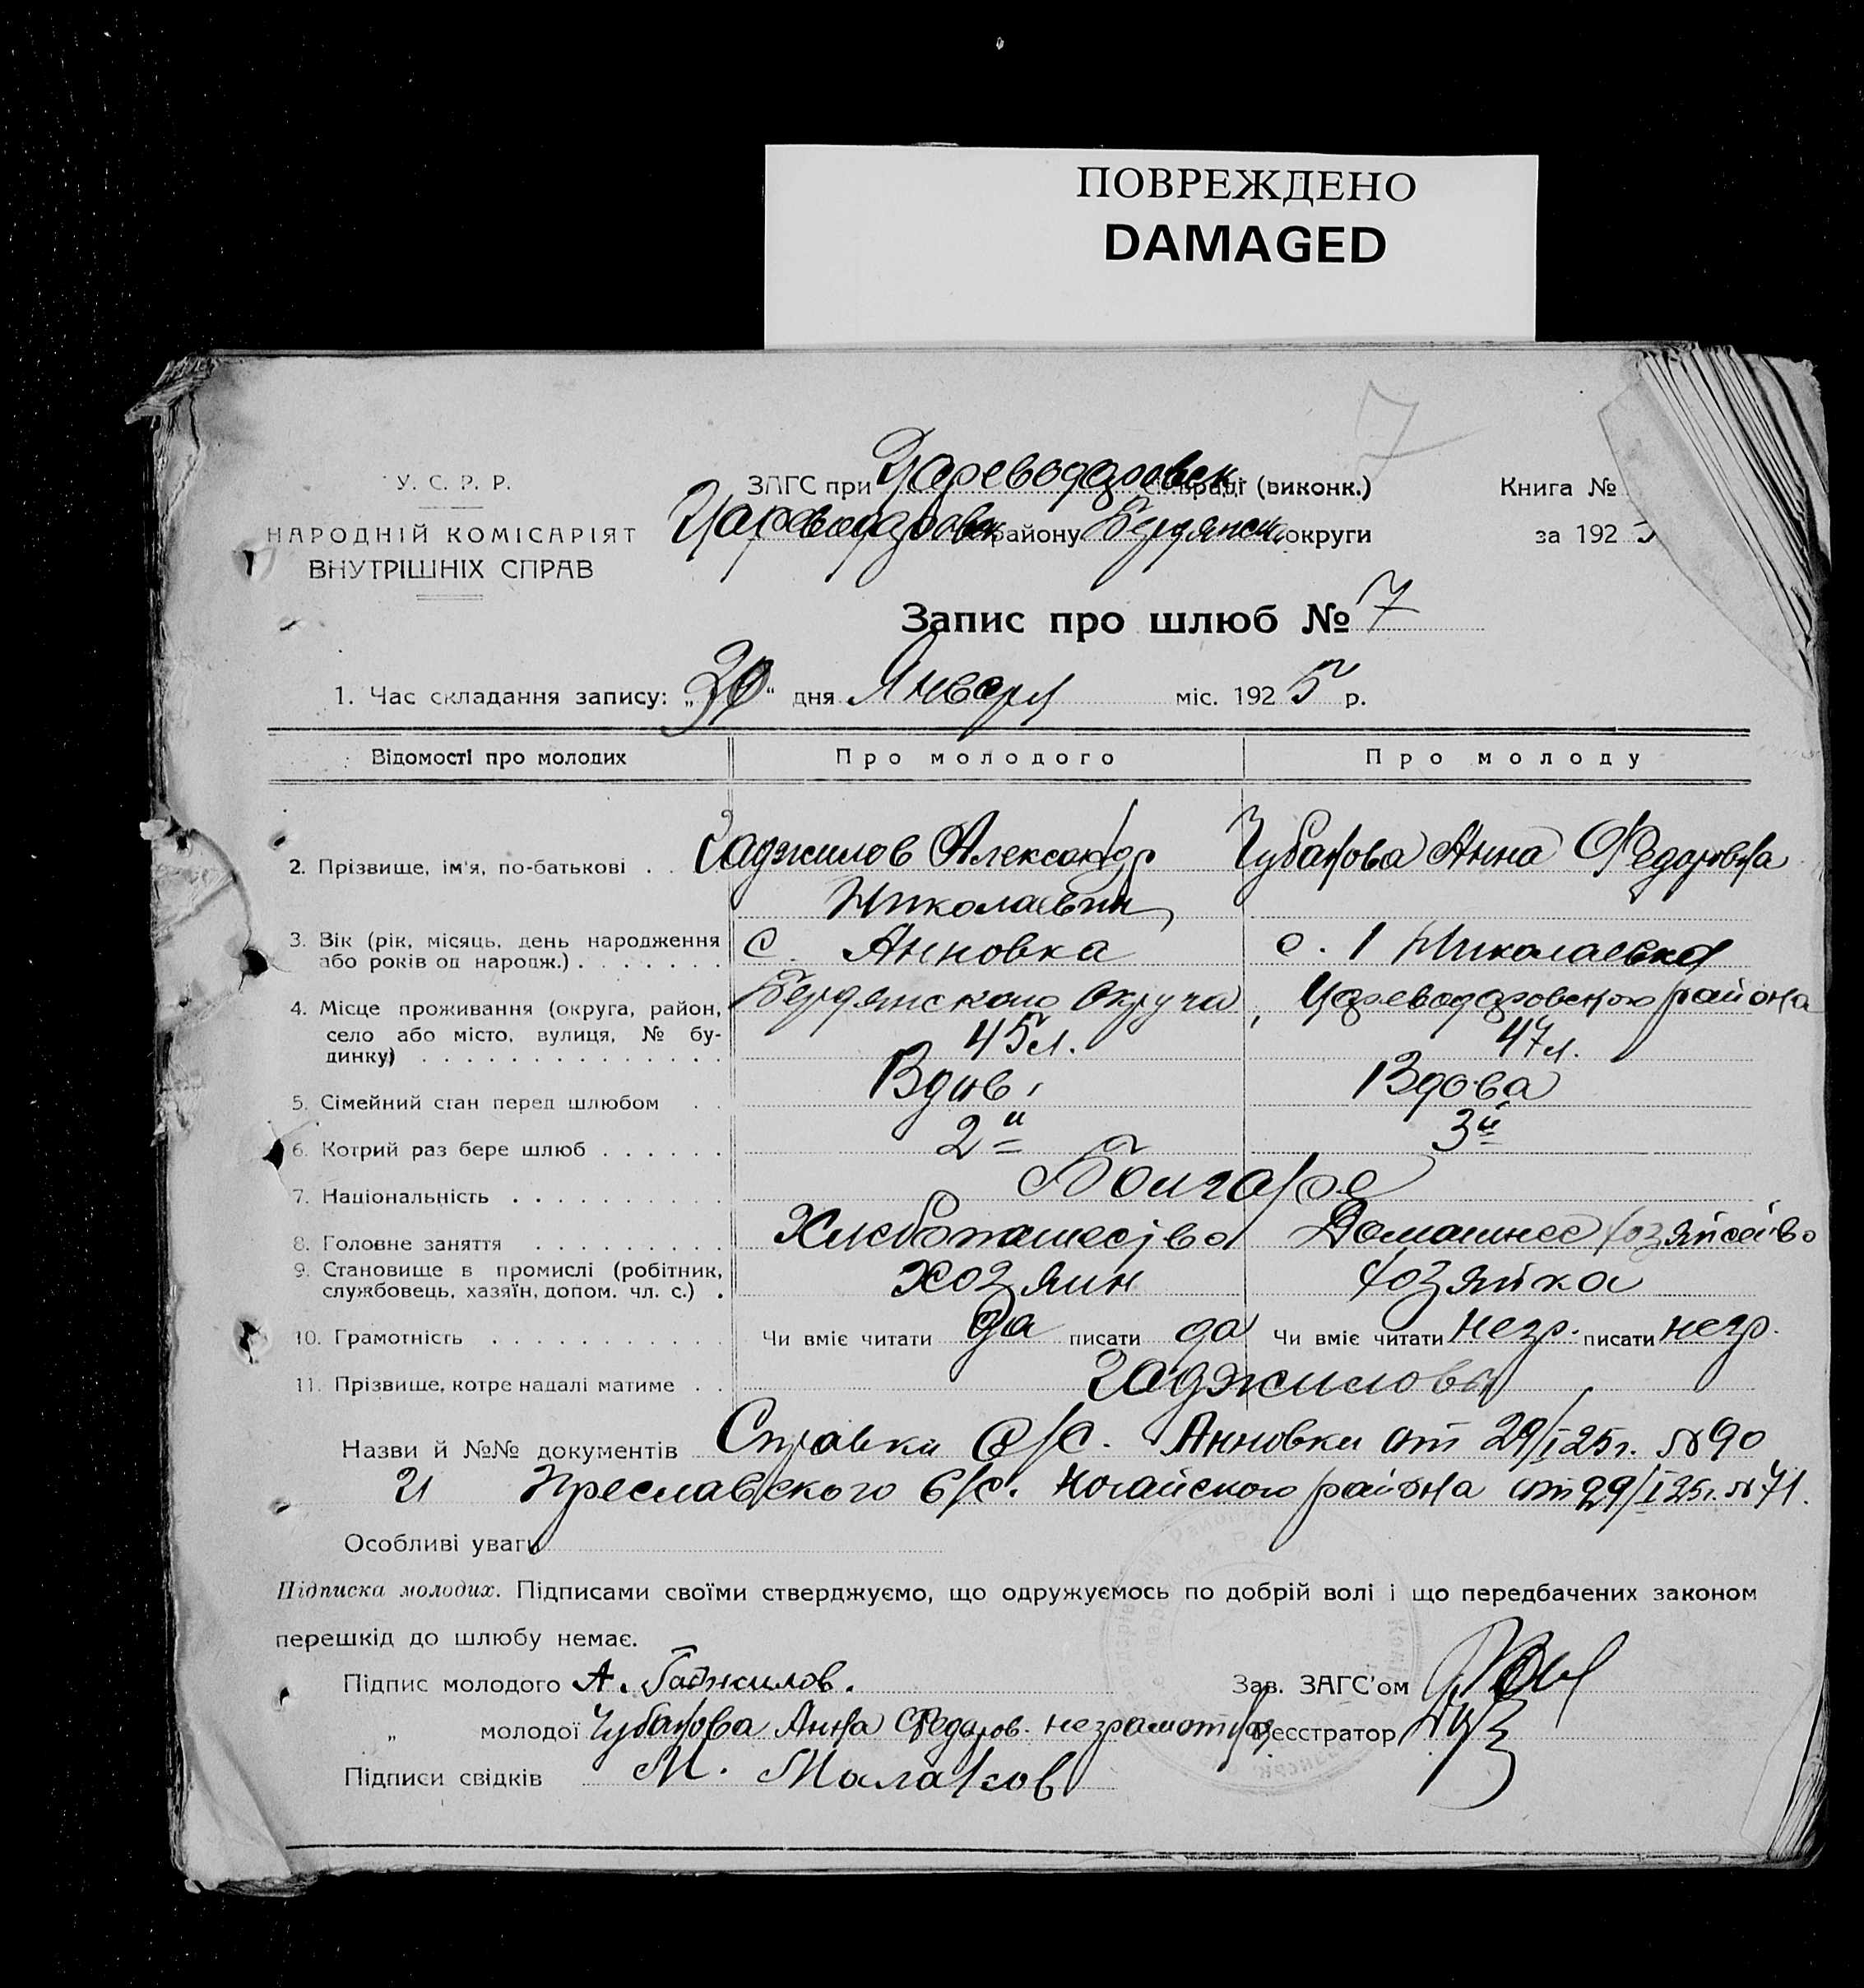 ПОВРЕЖДЕНО
DAMAGED
7
У. С. Р. Р.
НАРОДНІЙ КОМІСАРІЯТ
ВНУТРІШНІХ СПРАВ
ЗАГС при Цареводаровск (виконк.)
Цареводаровск району Бердянск округи
Книга №
за 192 5
Запис про шлюб № 7
1. Час складання запису: „30“ дня Января міс. 192 5 р.
Відомості про молодих Про молодого Про молоду
2. Прізвище, ім'я, по-батькові . . Гаджилов Александр Чубанова Анна Федоровна
Николаевич
3. Вік (рік, місяць, день народження с. Анновка с. 1 Николаевка
або років од народж.) . . . . . . .
4. Місце проживання (округа, район, Бердянского Округа, Цареводаровского района
село або місто, вулиця, № бу- 45 л. 47 л.
динку) . . . . . . . . . . . . . .
5. Сімейний стан перед шлюбом . . Вдов. Вдова
6. Котрий раз бере шлюб . . . . . . 2й 3й
7. Національність . . . . . . . . . . Болгаре
8. Головне заняття . . . . . . . . . Хлебопашество Домашнее хозяйство
9. Становище в промислі (робітник, Хозяин хозяйка
службовець, хазяїн, допом. чл. с.) .
10. Грамотність . . . . . . . . . . . Чи вміє читати да писати да Чи вміє читати негр. писати негр.
11. Прізвище, котре надалі матиме . . Гаджиловы
Назви й №№ документів Справки С/С. Анновки от 29/I 25 г. № 90
и Преславского С/С. Ногайского района от 29/I 25 г. № 71.
Особливі уваги
Підписка молодих. Підписами своїми стверджуємо, що одружуємось по добрій волі і що передбачених законом
перешкід до шлюбу немає.
Підпис молодого А. Гаджилов. Зав. ЗАГС'ом
„ молодої Чубанова Анна Федоров. неграмотная Реєстратор
Підписи свідків М. Малаков